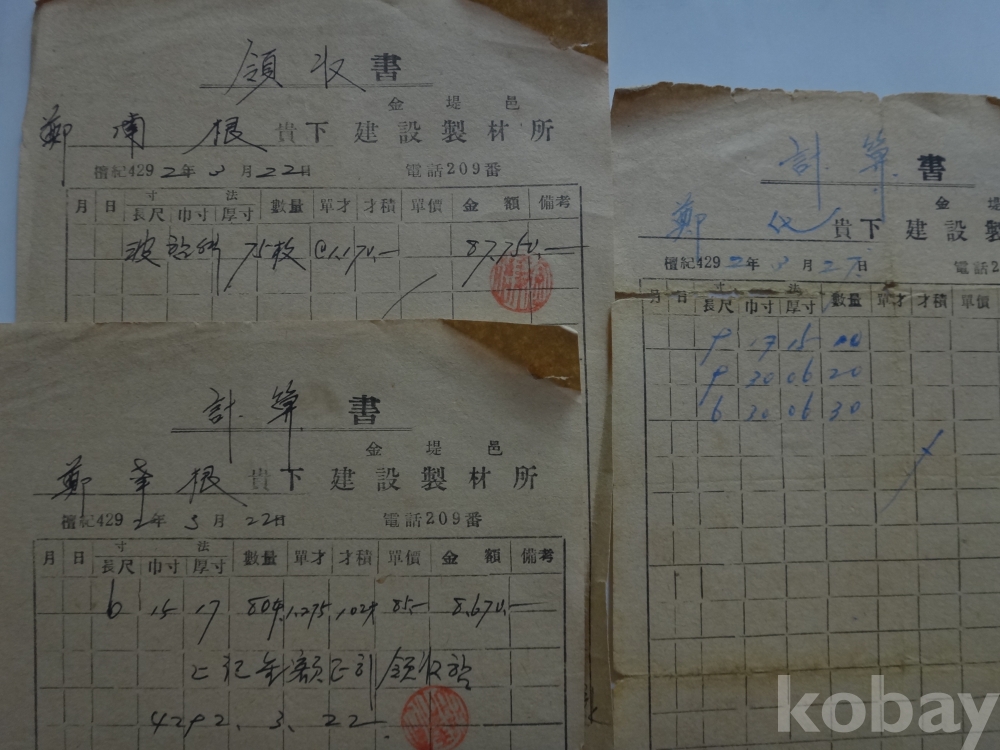 領收書
金堤邑
鄭 根 貴下 建設製材所
檀紀4292年 3月 22日 電話209番
月 日 寸法 長尺 巾寸 厚寸 數量 單才 才積 單價 金額 備考
75枚 @1,170.- 87,750.-
計算書
金堤邑
鄭 根 貴下 建設製材所
檀紀4292年 3月 22日 電話209番
月 日 寸法 長尺 巾寸 厚寸 數量 單才 才積 單價 金額 備考
6 15 17 80 1.275 102 85.- 8,670.-
上記金額正引領收함
4292. 3. 22
計算書
金堤
鄭 貴下 建設製
檀紀4292年 3月 27日 電話2
月 日 寸法 長尺 巾寸 厚寸 數量 單才 才積 單價
9 17 15
9 20 06 20
6 20 06 30
kobay